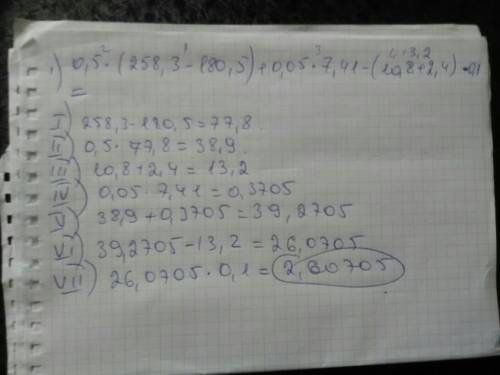 1) 0,5 · (258,3 - 180,5) + 0,05 · 7,41 - (10,8 + 2,4) · 0,1
=
I) 258,3 - 180,5 = 77,8
II) 0,5 · 77,8 = 38,9
III) 10,8 + 2,4 = 13,2
IV) 0,05 · 7,41 = 0,3705
V) 38,9 + 0,3705 = 39,2705
VI) 39,2705 - 13,2 = 26,0705
VII) 26,0705 · 0,1 = 2,60705